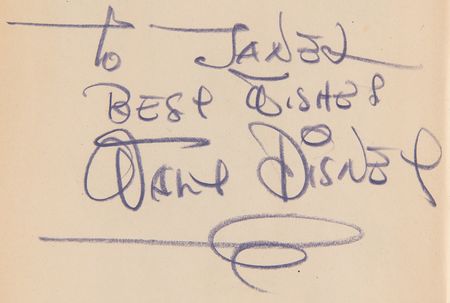 To JANET
BEST WISHES
WALT DISNEY